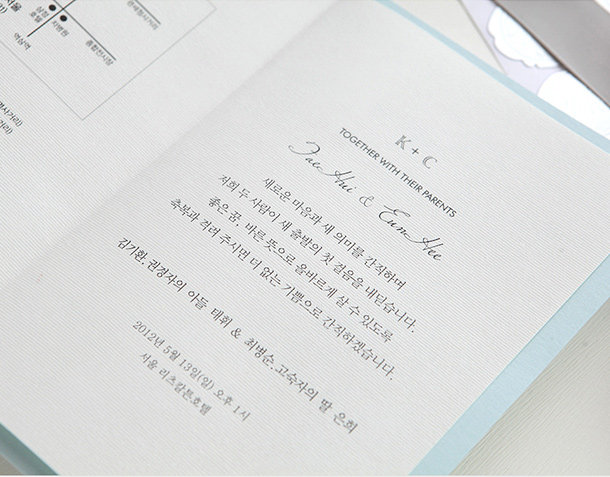 역삼역
종합전시장
K + C
TOGETHER WITH THEIR PARENTS
Tae Hui & Eun Hee
새로운 마음과 새 의미를 간직하며
저희 두 사람이 새 출발의 첫 걸음을 내딛습니다.
좋은 꿈, 바른 뜻으로 올바르게 살 수 있도록
축복과 격려 주시면 더 없는 기쁨으로 간직하겠습니다.
김기환.권경자의 아들 태휘 & 최병순.고숙자의 딸 은희
2012년 5월 13일(일) 오후 1시
서울 리츠칼튼호텔